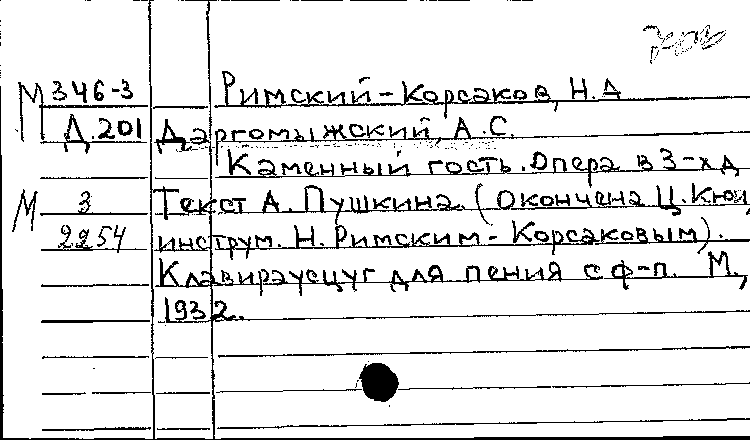 М 346-3 Римский-Корсаков, Н.А
Д.201 Даргомыжский, А.С.
Каменный гость. Опера в 3-х д
М 3 Текст А. Пушкина. (Окончена Ц. Кюи,
2254 инструм. Н. Римским-Корсаковым).
Клавираусцуг для пения с ф-п. М.,
1932.